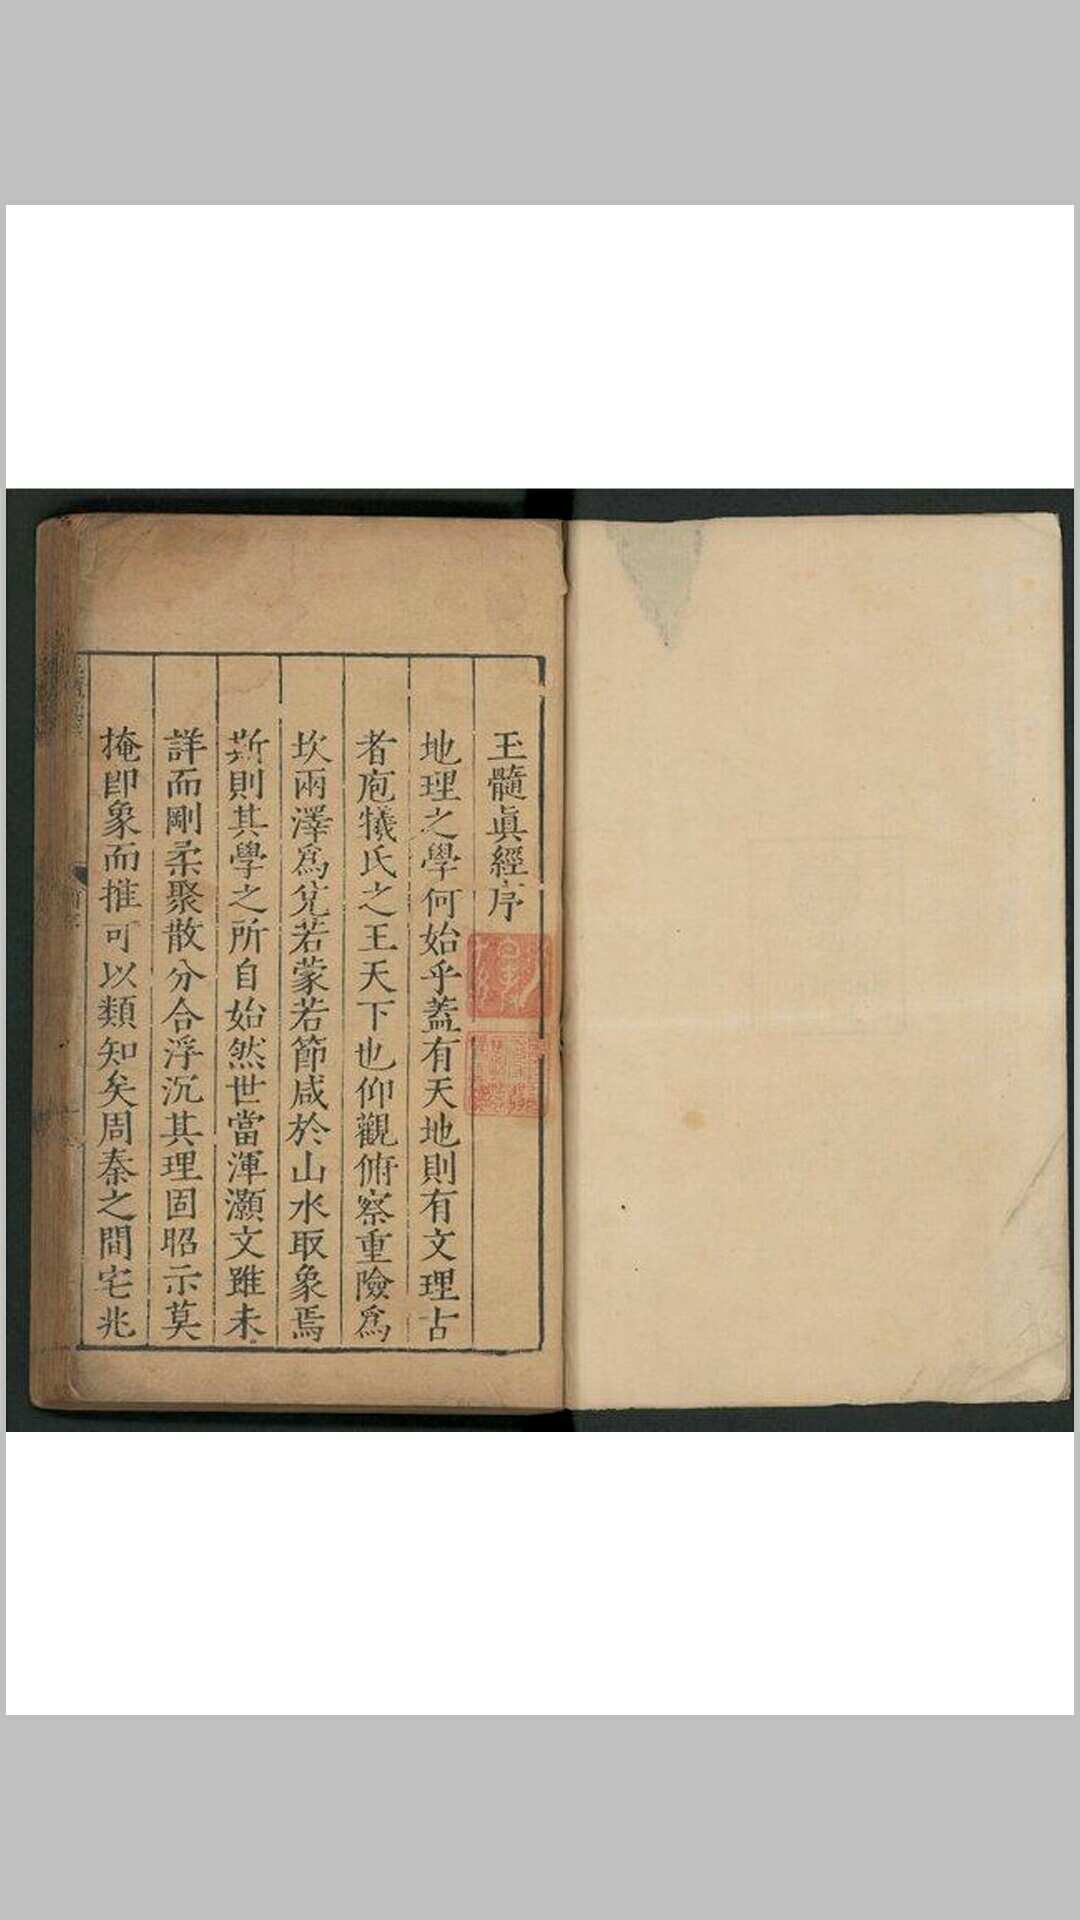 玉髓眞經序
地理之學何始乎蓋有天地則有文理占
者庖犧氏之王天下也仰觀俯察重險爲
坎兩澤爲兌若蒙若節咸於山水取象焉
斯則其學之所自始然世當渾灝文雖未
詳而剛柔聚散分合浮沉其理固昭示莫
掩卽象而推可以類知矣周秦之間宅兆